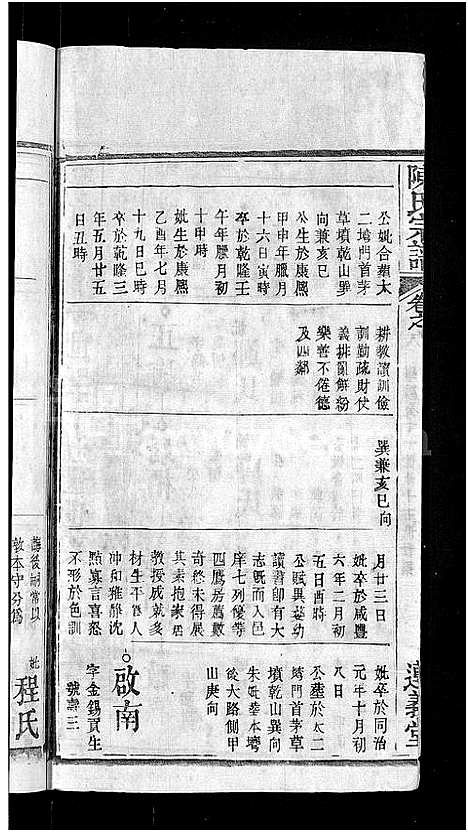 陳氏宗譜
卷之
公妣合塟太
二塆門首茅
草墳乾山巽
向兼亥巳
公生於康熙
甲申年臘月
十六日寅時
卒於乾隆壬
午年臘月初
十申時
妣生於康熙
乙酉年七月
十九日巳時
卒於乾隆三
年五月廿五
日丑時
耕教讀訓儉
訓勤疏財仗
義排亂解紛
樂善不倦德
及四鄰
巽兼亥巳向
月廿三日
妣卒於咸豐
六年二月初
五日酉時
公賦異㓜
讀書即有大
志既而入邑
庠七列優等
四薦房萬數
奇終未得展
其素抱家居
教授成就多
材生平為人
沖和雅靜沈
黙寡言喜怒
不形於色訓
妣卒於同治
元年十月初
八日
公塟於太二
塆門首茅草
墳乾山巽向
朱妣塟本塆
後大路側甲
山庚向
啟南
字金錫貢生
號壽三
以
敦本守分為
妣
程氏
義堂